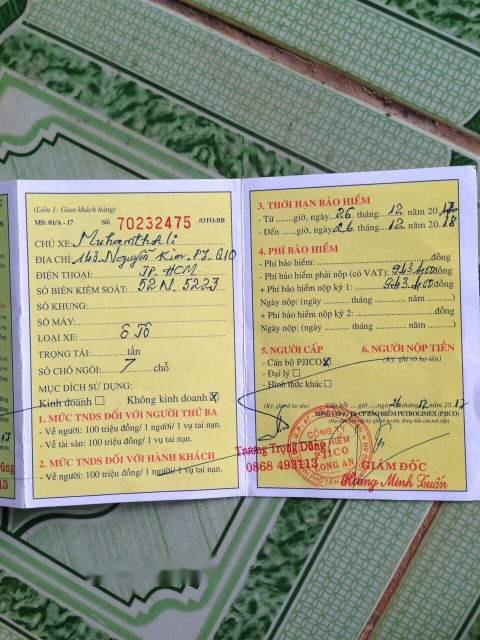 (Liên 1: Giao khách hàng)
MS: 01/A - 17 Số: 70232475 /OTO-BB
CHỦ XE: Muhamthali
ĐỊA CHỈ: 143 Nguyễn Kim. P7. Q10
ĐIỆN THOẠI: TP. HCM
SỐ BIỂN KIỂM SOÁT: 52N. 5223
SỐ KHUNG:
SỐ MÁY:
LOẠI XE: Ô Tô
TRỌNG TẢI: tấn
SỐ CHỖ NGỒI: 7 chỗ
MỤC ĐÍCH SỬ DỤNG:
Kinh doanh Không kinh doanh
1. MỨC TNDS ĐỐI VỚI NGƯỜI THỨ BA
- Về người: 100 triệu đồng/ 1 người/ 1 vụ tai nạn.
- Về tài sản: 100 triệu đồng/ 1 vụ tai nạn.
2. MỨC TNDS ĐỐI VỚI HÀNH KHÁCH
- Về người: 100 triệu đồng/ 1 người/ 1 vụ tai nạn.
3. THỜI HẠN BẢO HIỂM
- Từ ......giờ, ngày 26 tháng 12 năm 2017
- Đến ......giờ, ngày 26 tháng 12 năm 2018
4. PHÍ BẢO HIỂM
- Phí bảo hiểm: đồng
- Phí bảo hiểm phải nộp (có VAT): 943.400 đồng
+ Phí bảo hiểm nộp kỳ 1: 943.400 đồng
Ngày nộp: (ngày ............ tháng ............ năm ............)
+ Phí bảo hiểm nộp kỳ 2: đồng
Ngày nộp: (ngày ............ tháng ............ năm ............)
5. NGƯỜI CẤP 6. NGƯỜI NỘP TIỀN
- Cán bộ PJICO (Ký, ghi rõ họ tên)
- Đại lý
- Hình thức khác
(Ký, ghi rõ họ tên) Cấp hồi giờ ngày 26/12/2017
TỔNG CÔNG TY CP BẢO HIỂM PETROLIMEX (PJICO)
CÔNG TY
BẢO HIỂM
PJICO
LONG AN
Trương Trọng Dũng
0868 493113
GIÁM ĐỐC
Hoàng Minh Tuấn